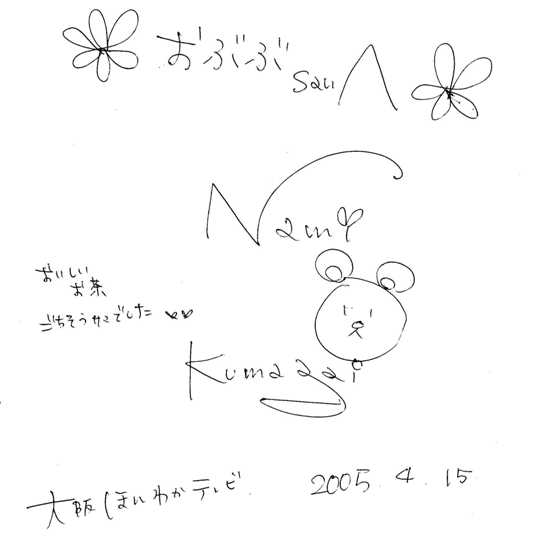 おぶぶ sau へ
Nami
おいしい
お茶
ごちそうさまでした
Kumagai
大阪ほんわかテレビ
2005.4.15